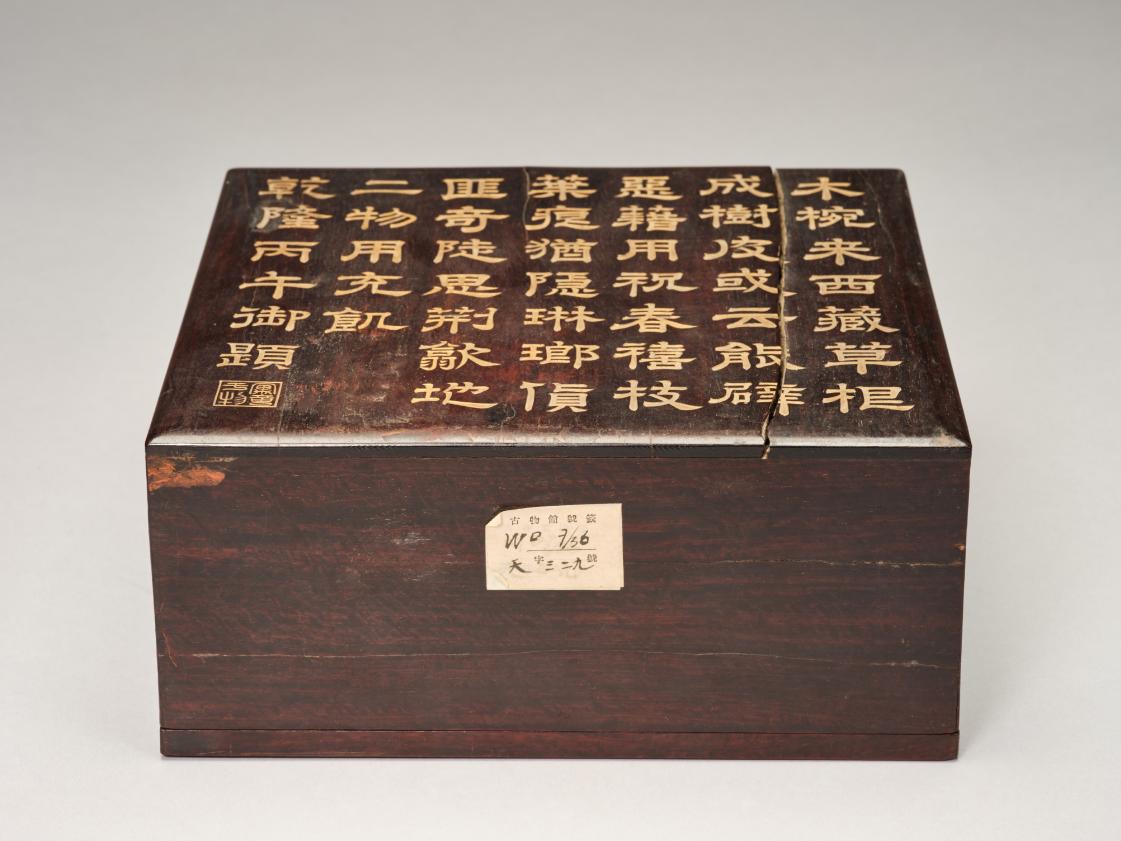 木椀来西藏草根
成樹皮或云能辟
惡藉用祝春禧枝
葉痕猶隱琳瑯貭
匪奇陡思荊歙地
二物用充飢
乾隆丙午御題
古物館號籤
天字三二九號